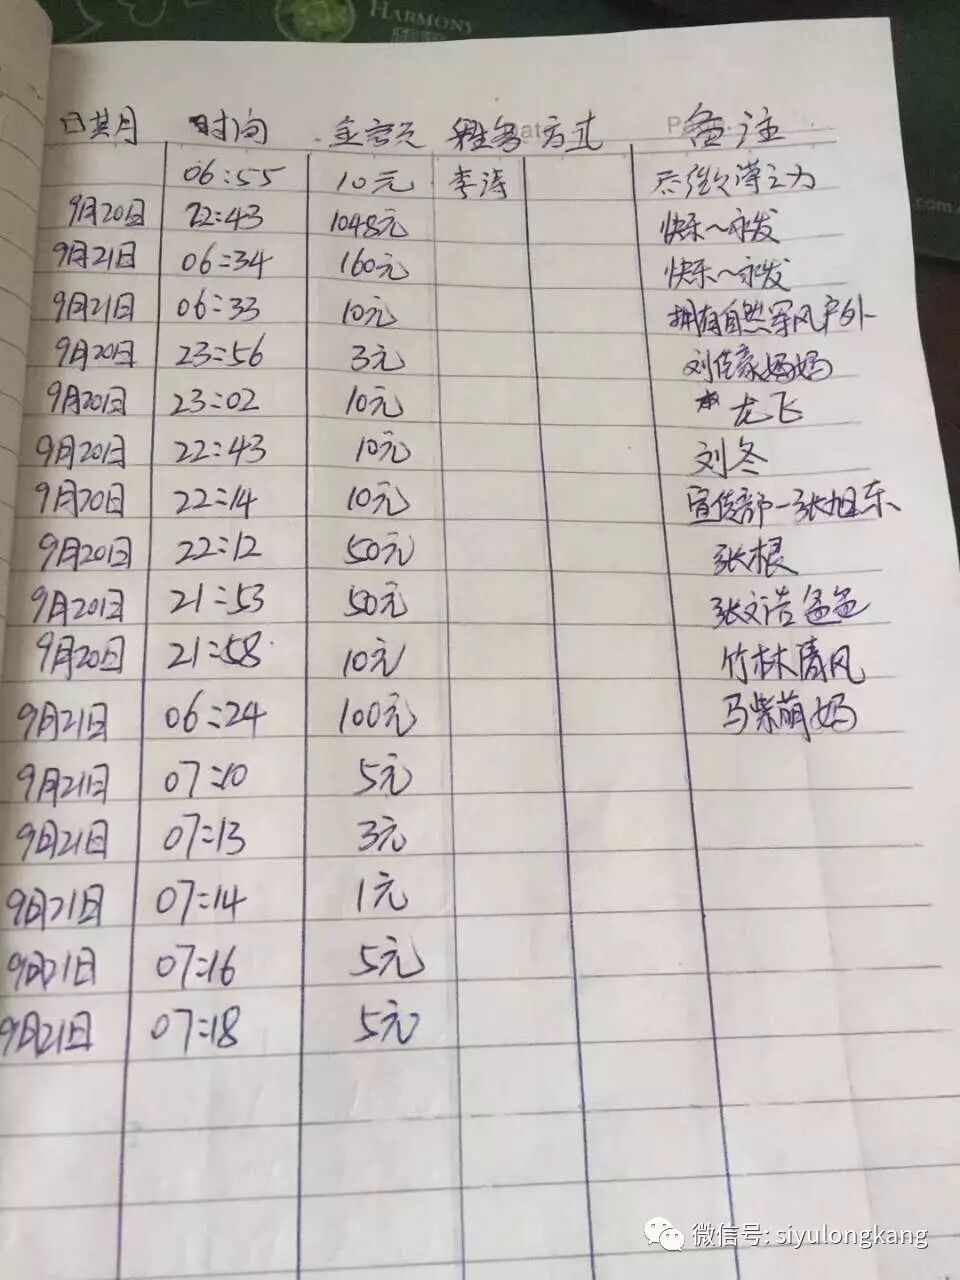 HARMONY
日期 时间 金额 姓名 方式 备注
06:55 10元 李涛 尽绵薄之力
9月20日 22:43 1048元 快乐~永发
9月21日 06:34 160元 快乐~永发
9月21日 06:33 10元 拥有自然军风户外
9月20日 23:56 3元 刘佳豪妈妈
9月20日 23:02 10元 龙飞
9月20日 22:43 10元 刘冬
9月20日 22:14 10元 宣传部-张旭东
9月20日 22:12 50元 张根
9月20日 21:53 50元 张文浩爸爸
9月20日 21:58 10元 竹林清风
9月21日 06:24 100元 马紫萌妈
9月21日 07:10 5元
9月21日 07:13 3元
9月21日 07:14 1元
9月21日 07:16 5元
9月21日 07:18 5元
微信号: siyulongkang